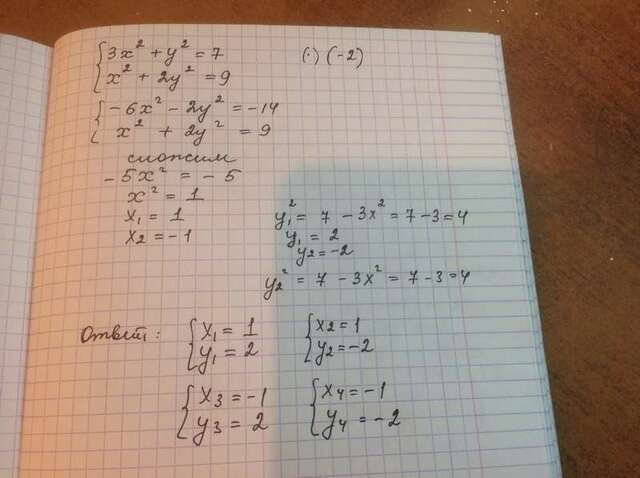 3x² + y² = 7 (·) (-2)
x² + 2y² = 9
-6x² - 2y² = -14
x² + 2y² = 9
сложим
-5x² = -5
x² = 1
x₁ = 1
x₂ = -1
y₁² = 7 - 3x² = 7 - 3 = 4
y₁ = 2
y₂ = -2
y₂² = 7 - 3x² = 7 - 3 = 4
Ответ: x₁ = 1 x₂ = 1
y₁ = 2 y₂ = -2
x₃ = -1 x₄ = -1
y₃ = 2 y₄ = -2